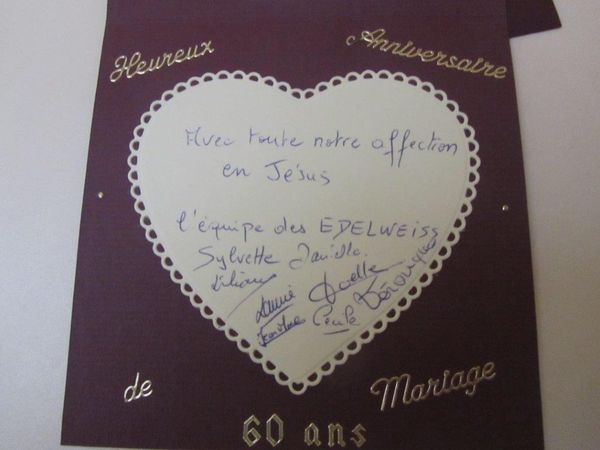 Heureux Anniversaire
Avec toute notre affection
en Jésus
l'équipe des EDELWEISS
Sylvette Danielle
Liliane
Annie Joelle Véronique
Cécile
de Mariage
60 ans